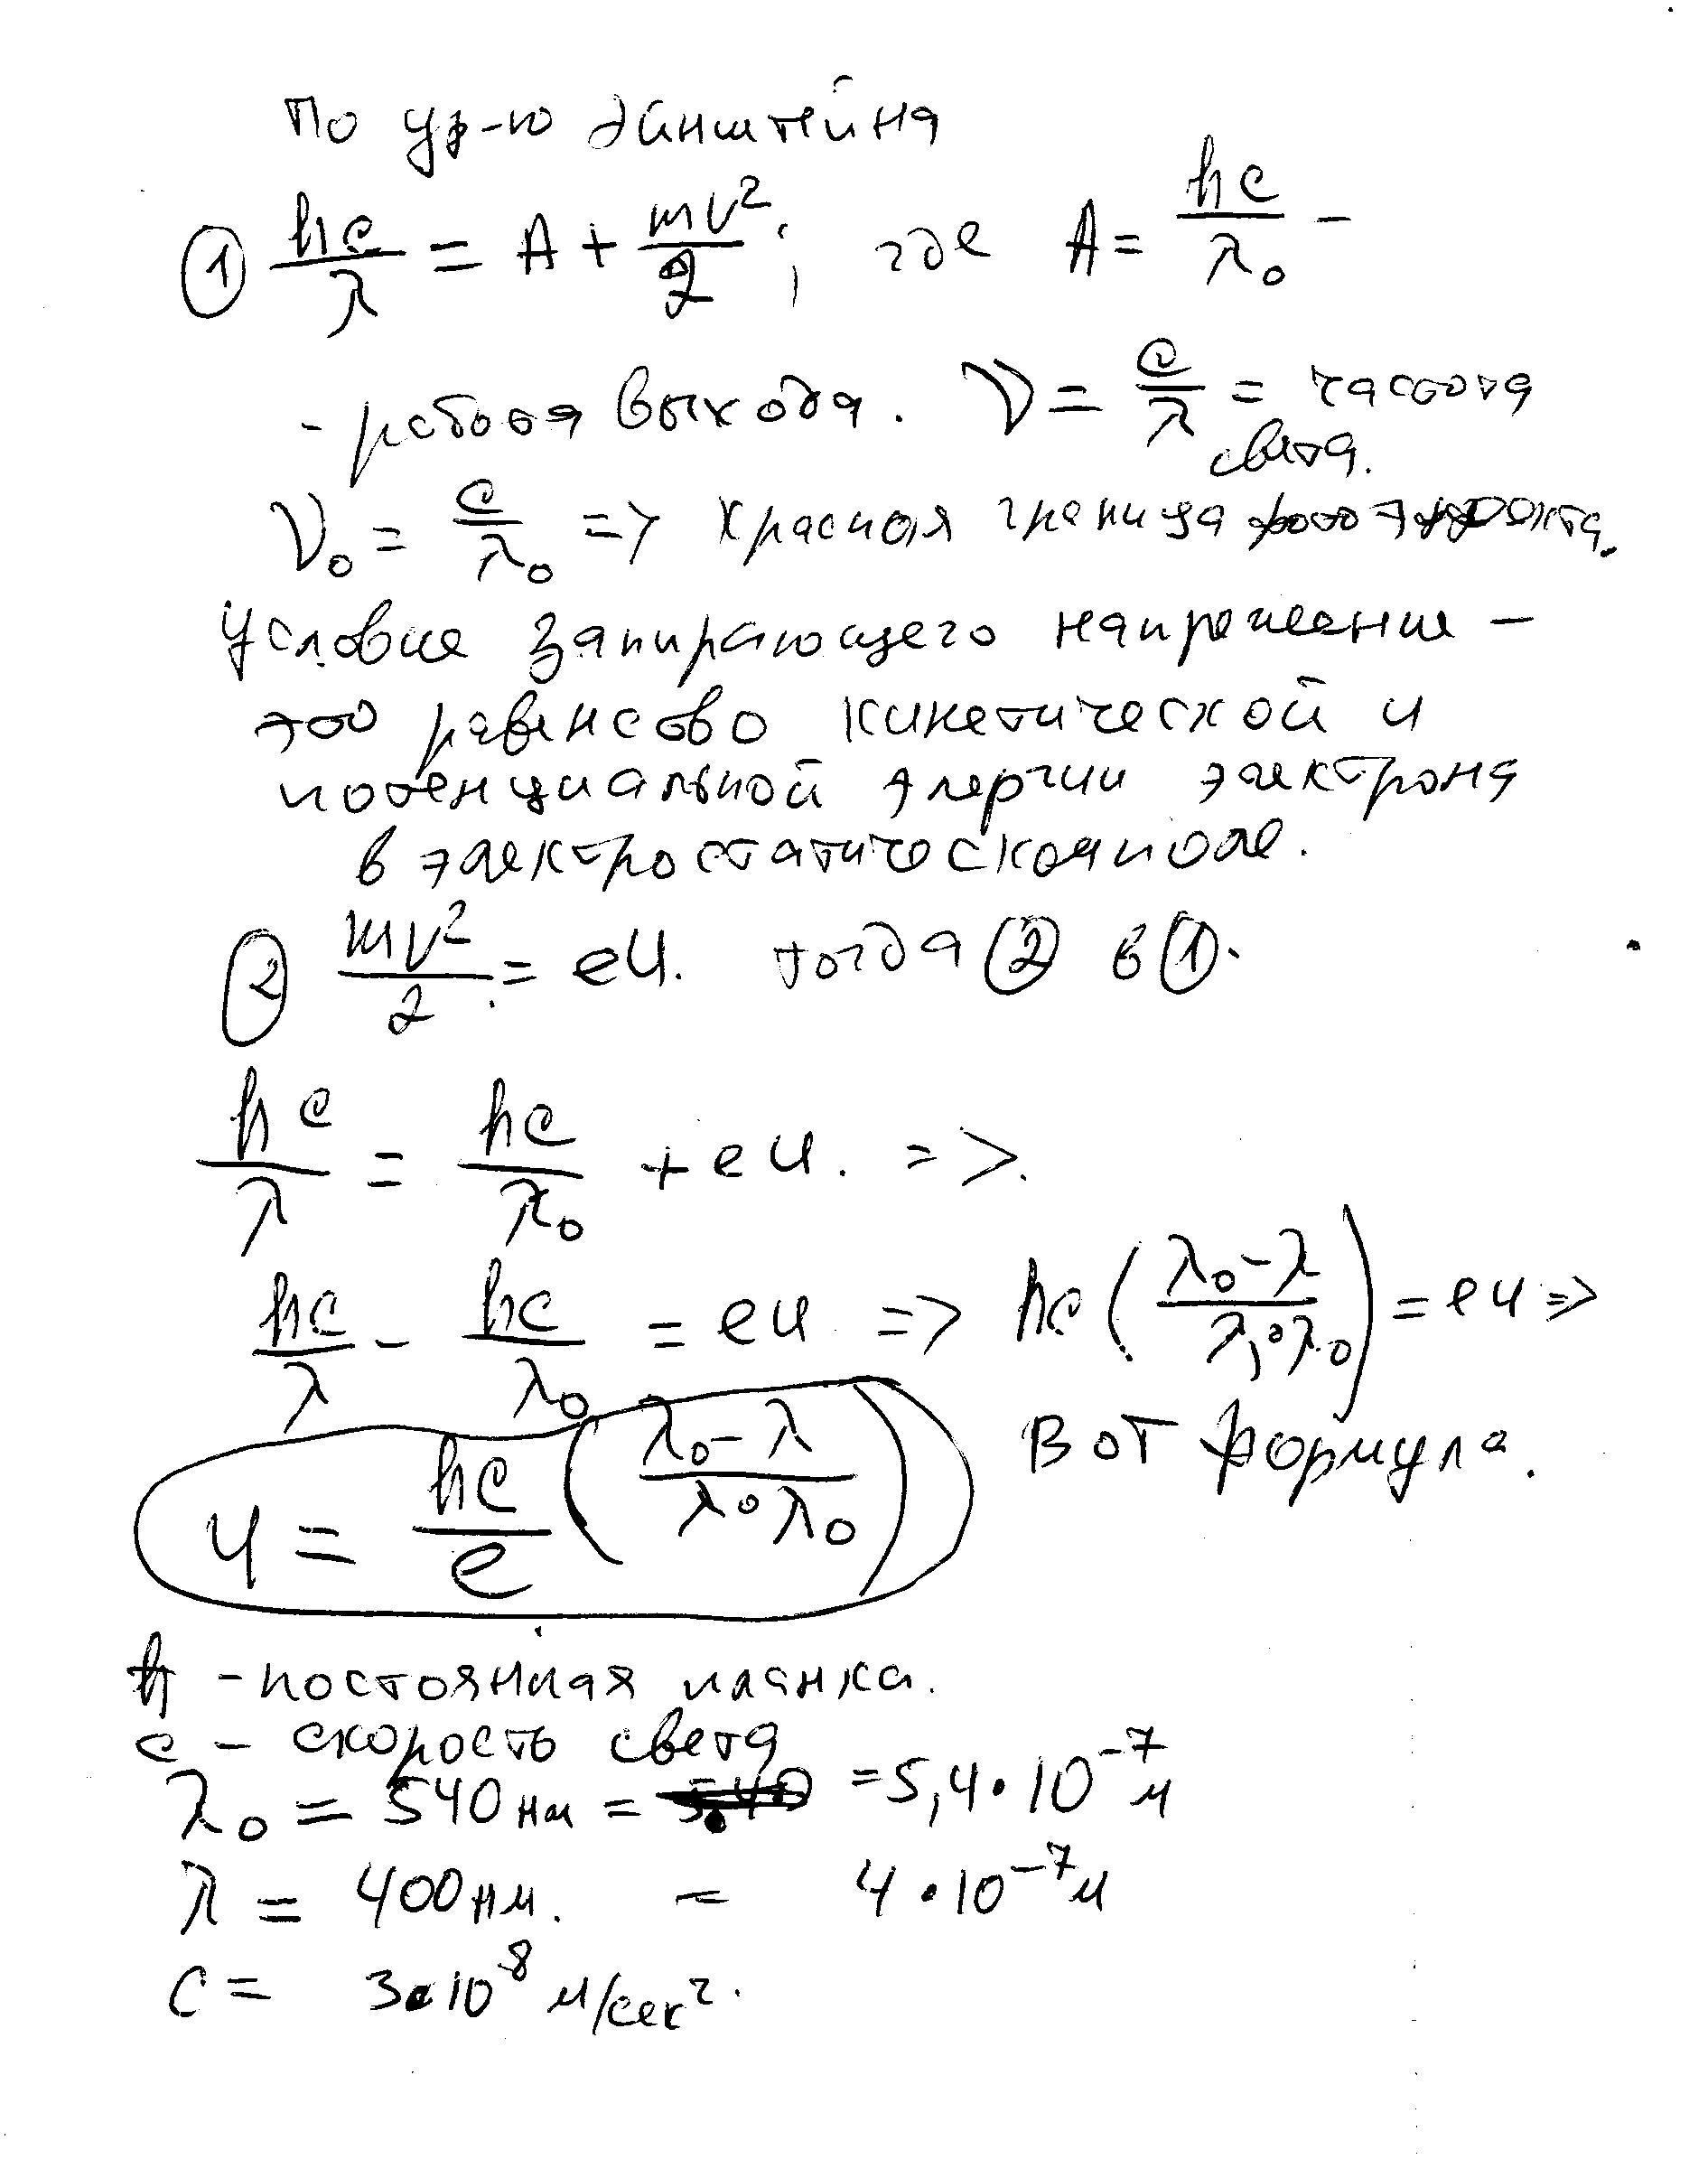 По ур-ю Эйнштейна
① hc/λ = A + mv²/2; где A = hc/λ₀ –
- работа выхода. ν = c/λ = частота
света.
ν₀ = c/λ₀ => красная граница фотоэффекта.
Условие запирающего напряжение –
это равенство кинетической и
потенциальной энергии электрона
в электростатическом поле.
② mv²/2 = eU. тогда ② в ①.
hc/λ = hc/λ₀ + eU. =>.
hc/λ - hc/λ₀ = eU => hc((λ₀-λ)/(λ∘λ₀)) = eU =>
U = hc/e ((λ₀-λ)/(λ∘λ₀)) Вот формула.
h - постоянная планка.
c - скорость света
λ₀ = 540 нм = = 5,4•10⁻⁷ м
λ = 400 нм. = 4•10⁻⁷ м
c = 3•10⁸ м/сек².